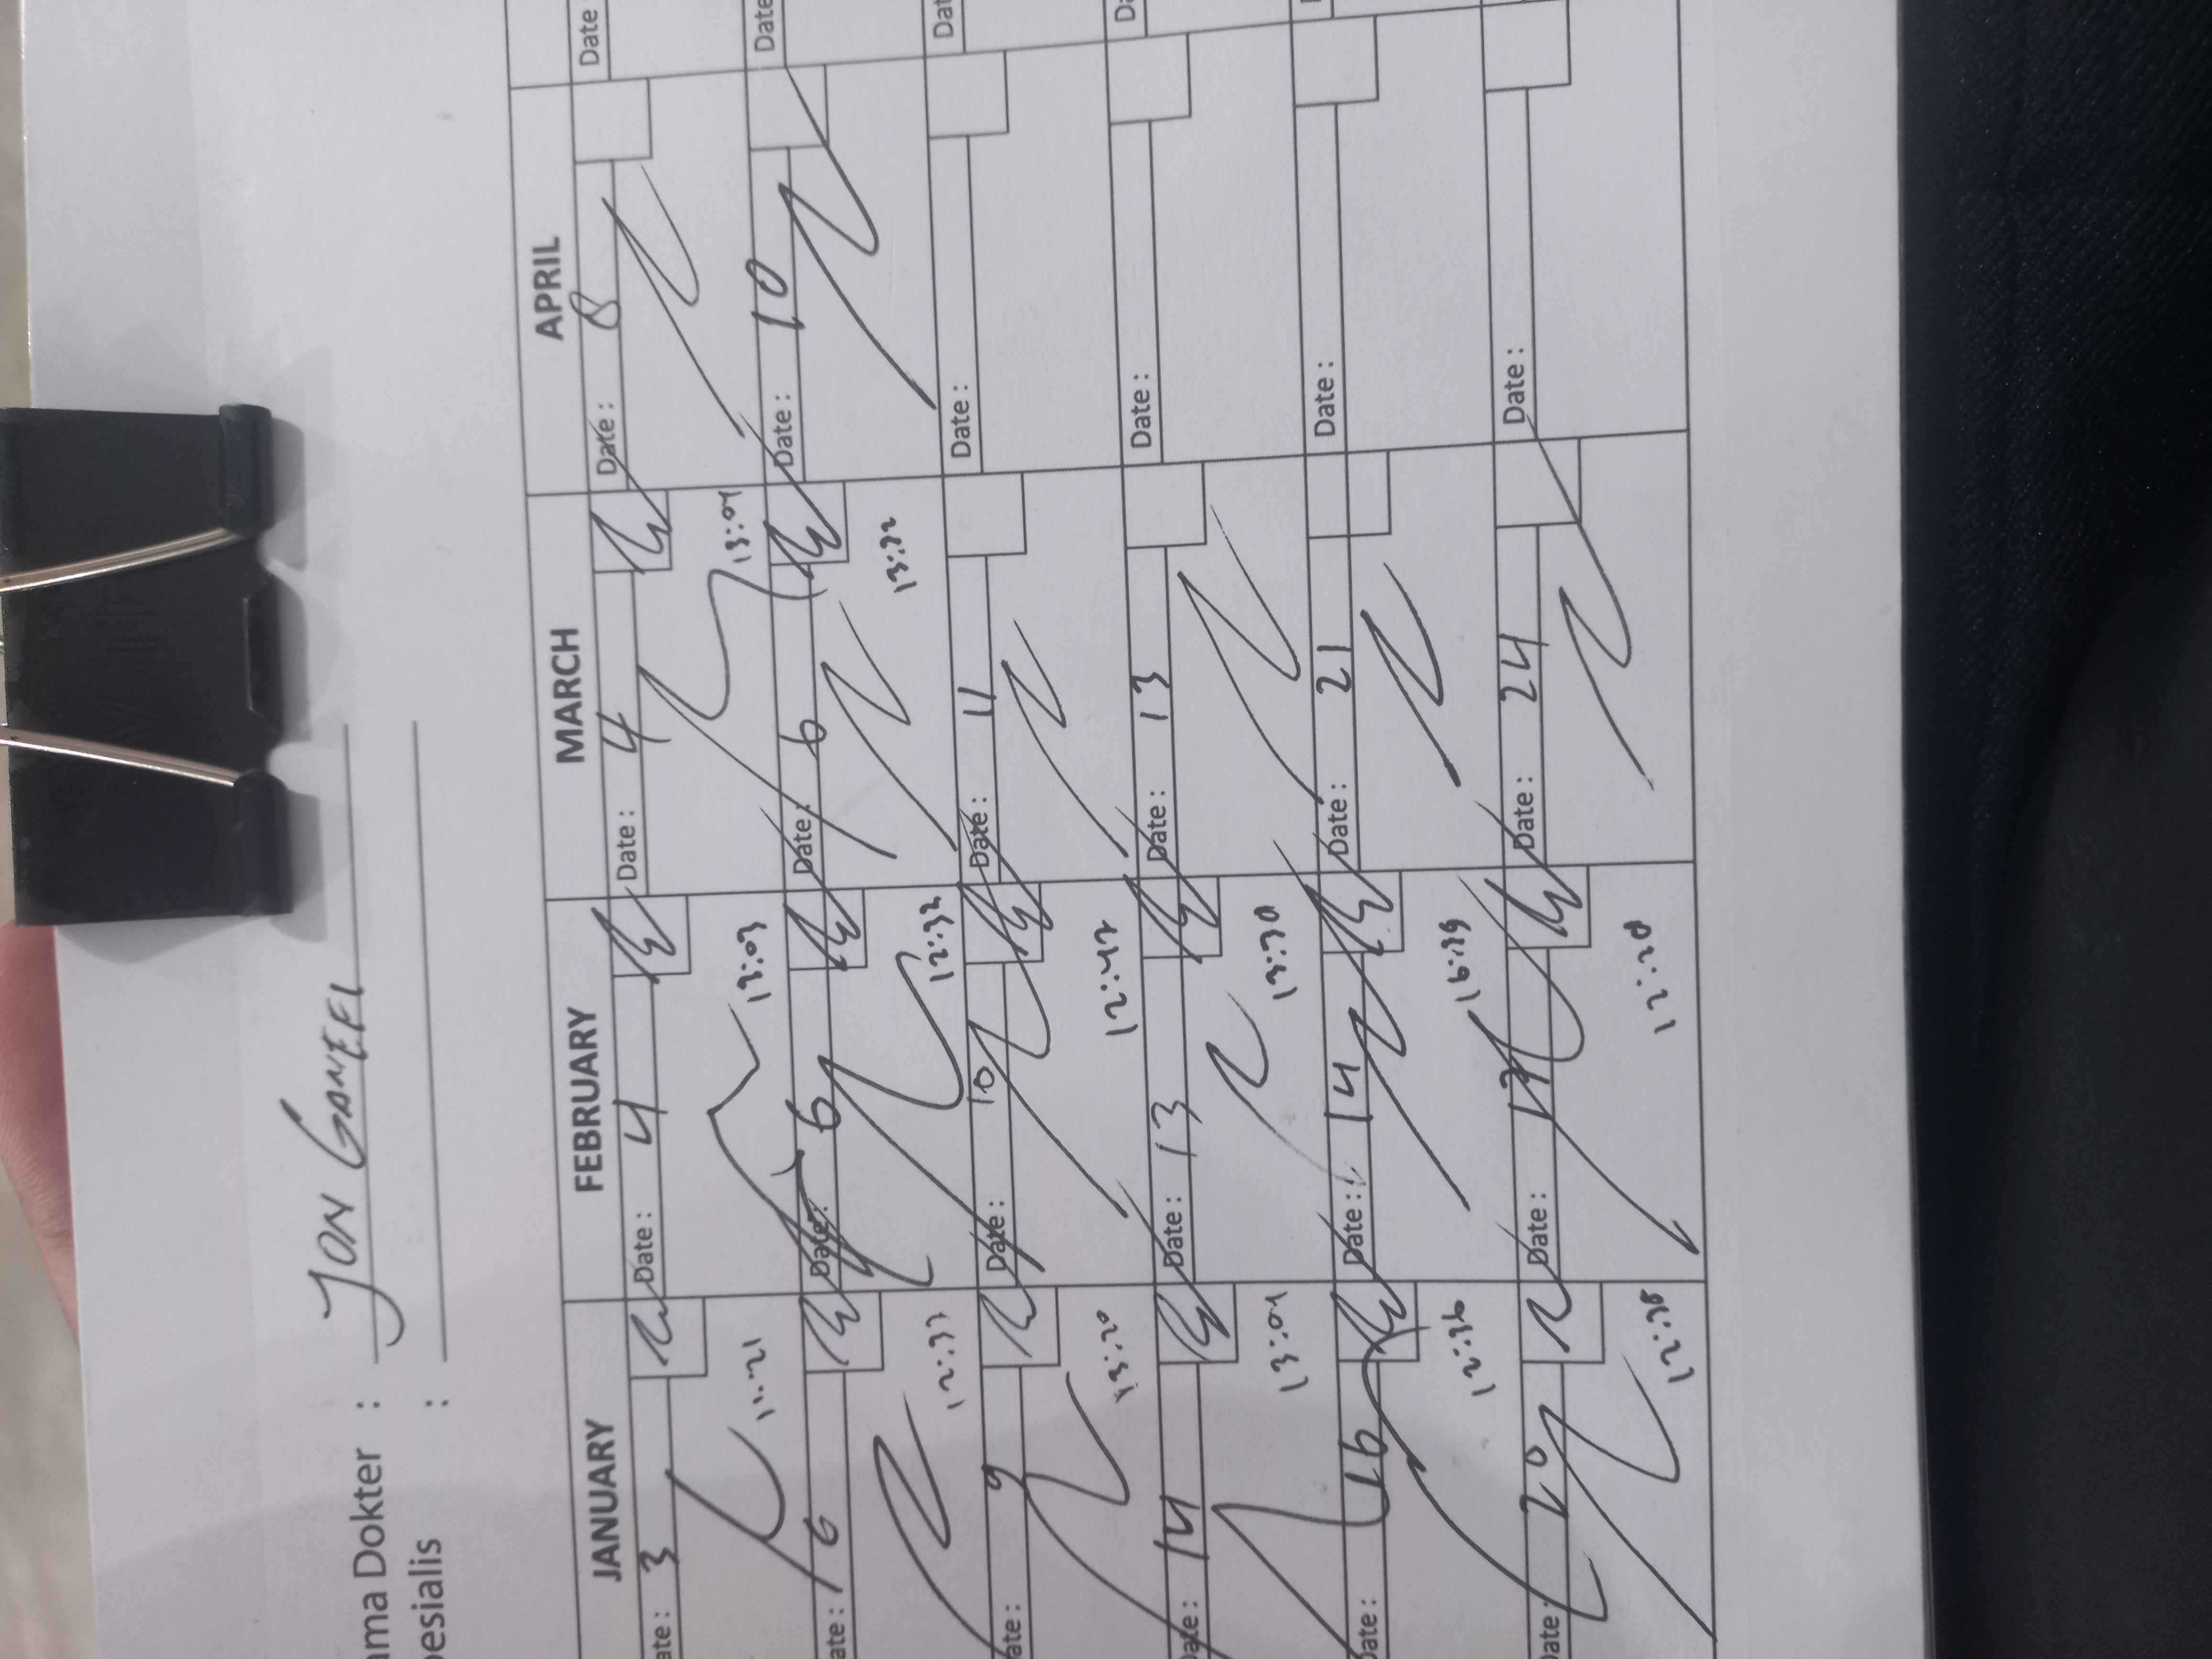 ama Dokter : JON GANEFI
pesialis :
JANUARY FEBRUARY MARCH APRIL
ate : 3 Date : 4 Date : 4 Date : 8 Date
11:21 13:03 13:07
ate : 6 Date : 6 Date : 6 Date : 10 Date
12:33 12:32 13:22
ate : 9 Date : 10 Date : 11 Date : Dat
13:20 12:47
ate : 14 Date : 13 Date : 13 Date : Da
13:01 13:30
ate : 16 Date : 14 Date : 21 Date :
12:36 16:39
ate : 20 Date : 17 Date : 24 Date :
12:38 12:28